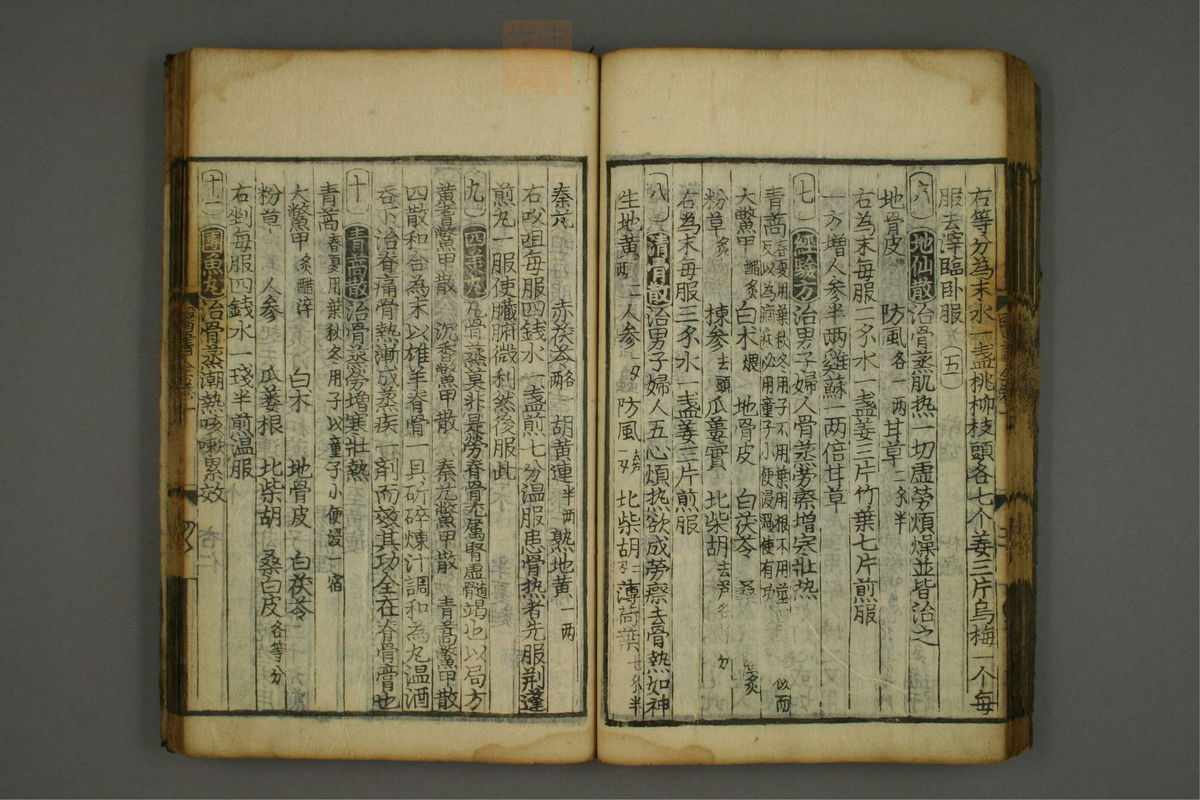 右等分為末水一盞桃柳枝頭各七个姜三片烏梅一个每
服去滓臨卧服 五
六 地仙散治骨蒸肌热一切虛劳煩燥並皆治之
地骨皮 防風各一两 甘草二分半
右為末每服二分水一盞姜三片竹葉七片煎服
一方增人参半两雞蘇一两倍甘草
七 經驗方治男子婦人骨蒸劳瘵增寒壯热
青蒿春夏用葉秋冬用子不用葉用根不用莖 必用童子小便浸過使有功
大鱉甲醋炙 白术煨 地骨皮 白茯苓 桑
粉草炙 楝参去頭 瓜蔞實 北柴胡去芦
右為末每服三分水一盞姜三片煎服
八 清骨散治男子婦人五心煩热欲成劳瘵去骨熱如神
生地黄二两 人参一分 防風一分 北柴胡二分 薄荷葉七分半
秦艽 赤茯苓各一两 胡黄連半两 熟地黄一两
右㕮咀每服四銭水一盞煎七分温服患骨热者先服荆蓬
煎丸一服使臓腑微利然後服此
九 四美丸凡骨蒸莫非是劳脊骨无属腎虚髓竭也以局方
黄耆鱉甲散 沉香鱉甲散 秦艽鱉甲散 青蒿鱉甲散
四散和合為末以雄羊脊骨一具斫碎煉汁調和為丸温酒
吞下治脊痛骨熱漸成蒸疾一剤而效其功全在脊骨膏也
十 青蒿散治骨蒸劳增寒壯熱
青蒿春夏用葉秋冬用子以童子小便浸一宿
大鱉甲炙醋淬 白术 地骨皮 白茯苓
粉草 人参 瓜蔞根 北柴胡 桑白皮各等分
右剉每服四銭水一琖半煎温服
十一 團魚丸治骨蒸潮熱咳嗽累效